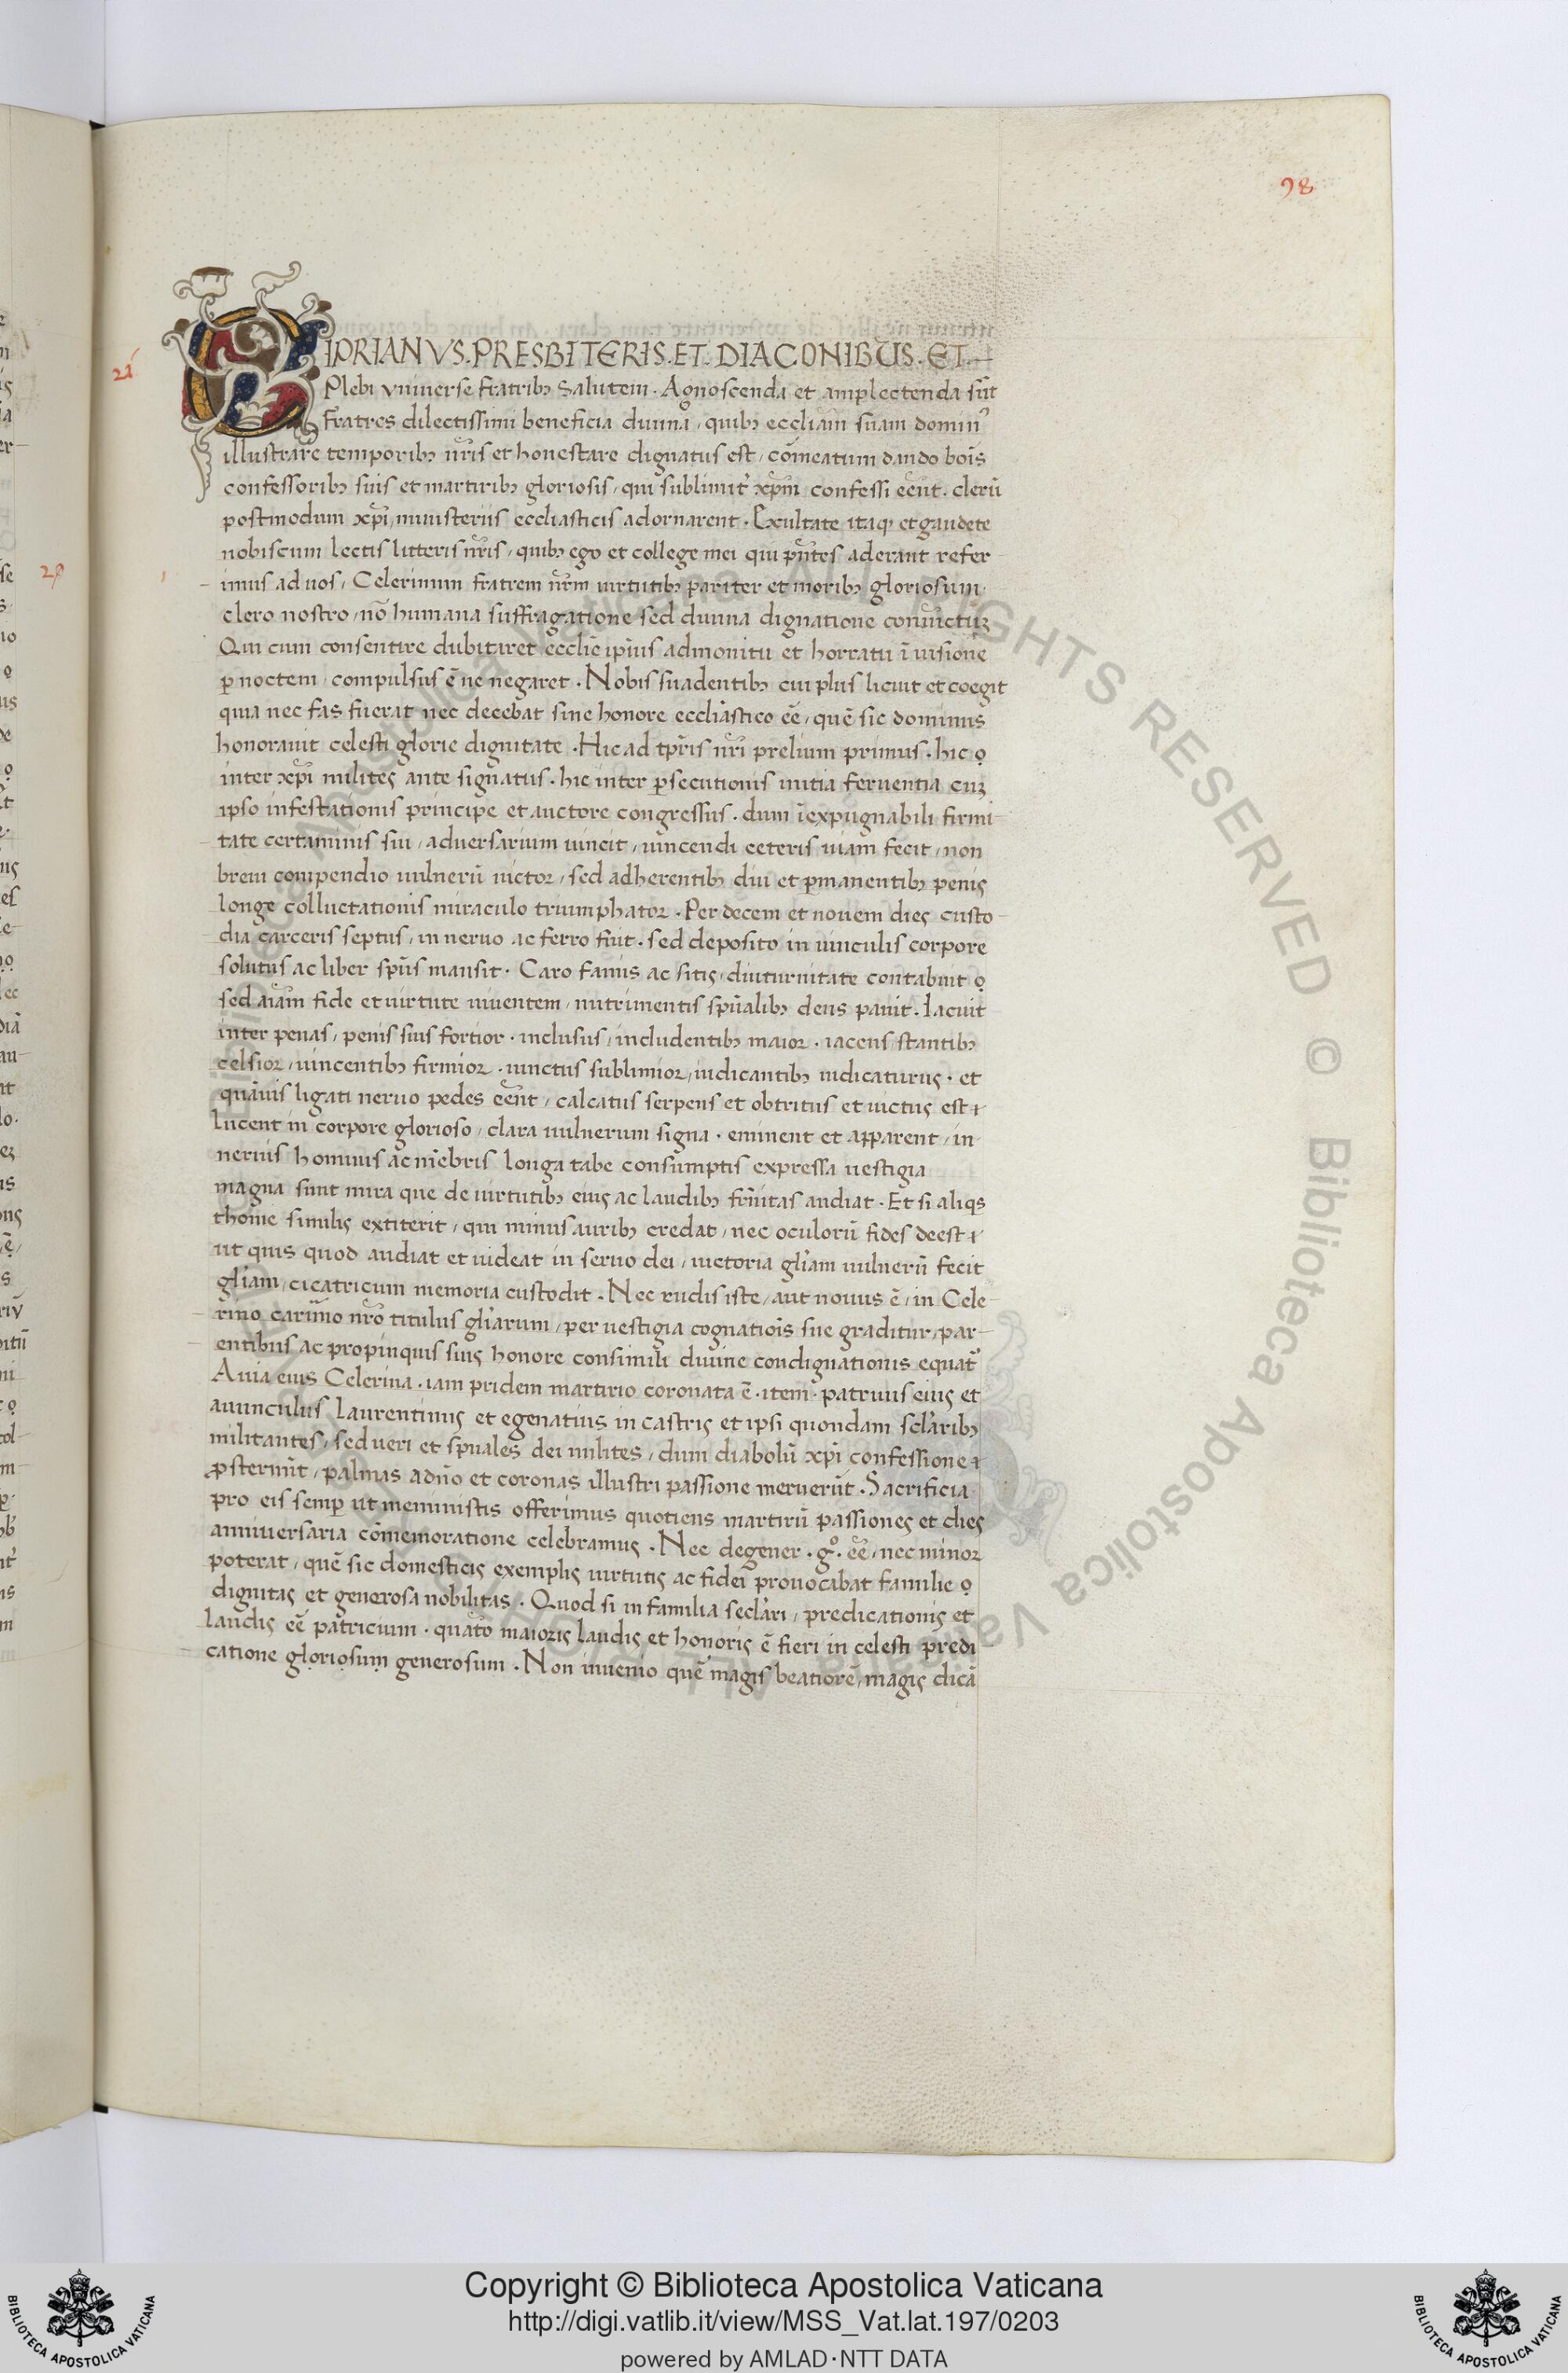 98
CIPRIANVS.PRESBITERIS.ET.DIACONIBUS.ET.
21
Plebi vniuerse fratribꝫ Salutem. Agnoscenda et amplectenda sūt
Fratres dilectissimi beneficia diuina, quibꝫ eccliam̄ suam domin᾿
illustrare temporibꝫ nr̄is et honestare dignatus est, cōmeatum dando bois̄
confessoribꝫ suis et martiribꝫ gloriosis, qui sublimit᾿ xp̄m confessi eēnt. clerū
postmodum xp̄i, ministeriis eccliasticis adornarent. Exultate itaqꝫ et gaudete
nobiscum lectis litteris nr̄is, quibꝫ ego et college mei qui pn̄tes aderant refer
imus ad uos, Celerinum fratrem nr̄m uirtutibꝫ pariter et moribꝫ gloriosum.
clero nostro, nō humana suffragatione sed diuina dignatione coniūctuꝫ
Qui cum consentire dubitiret ecclīe ipīus admonitu et hortatu ī uisione
ꝑ noctem, compulsus ē ne negaret. Nobis suadentibꝫ cui plus licuit et coegit
quia nec fas fuerat nec decebat sine honore eccliāstico eē, quē sic dominus
honorauit celesti glorie dignitate. Hic ad tpr̄is nr̄i prelium primus. hic
inter xp̄i milites ante signatus. hic inter ꝑsecutionis initia feruentia cuꝫ
ipso infestationis principe et auctore congressus. dum īexpugnabili firmi
tate certaminis sui, aduersarium uincit, uincendi ceteris uiam fecit, non
breui compendio uulnerū uictor, sed adherentibꝫ diu et ꝑmanentibꝫ penis
longe colluctationis miraculo triumphator. Per decem et nouem dies custo
dia carceris septus, in neruo ac ferro fuit. sed deposito in uinculis corpore
solutus ac liber spūs mansit. Caro famis ac sitis, diuturnitate contabuit
sed aiam̄ fide et uirtute uiuentem, nutrimentis spūalibꝫ deus pauit. Iacuit
inter penas, penis suis fortior. inclusus, includentibꝫ maior. iacens stantibꝫ
celsior, uincentibꝫ firmior. uinctus sublimior, iudicantibꝫ iudicaturus. et
quāuis ligati neruo pedes eēnt, calcatus serpens et obtritus et uictus est
lucent in corpore glorioso, clara uulnerum signa. eminent et apparent, in
neruis hominis ac mēbris longa tabe consumptis expressa uestigia
magna sunt mira que de uirtutibꝫ eius ac laudibꝫ frn̄itas audiat. Et si aliqs
thome similis extiterit, qui minus auribꝫ credat, nec oculorū fides deest
ut quis quod audiat et uideat in seruo dei, uictoria glīam uulnerū fecit
glīam, cicatricum memoria custodit. Nec rudis iste, aut nouus ē, in Cele
rino carim̄o nr̄o titulus glīarum, per uestigia cognatiois̄ sue graditur, par
entibus ac propinquis suis honore consimili diuine condignationis equat᾿
Auia eius Celerina. iam pridem martirio coronata ē. item. patruus eius et
auunculus Laurentinus et egenatius in castris et ipsi quondam scl̄aribꝫ
militantes, sed ueri et spūales dei milites, dum diabolū xp̄i confessione
ꝓsternūt, palmas adn̄o et coronas illustri passione meruerūt. Sacrificia
pro eis semꝑ ut meministis offerimus quotiens martirū passiones et dies
anniuersaria cōmemoratione celebramus. Nec degener. g°. eē, nec minor
poterat, quē sic domesticis exemplis uirtutis ac fidei prouocabat familie
dignitas et generosa nobilitas. Quod si in familia secl̄ari, predicationis et
laudis eē patricium. quāto maioris laudis et honoris ē fieri in celesti predi
catione gloriosum generosum. Non inuenio quē magis beatiorē, magis dicā
Copyright © Biblioteca Apostolica Vaticana
http://digi.vatlib.it/view/MSS_Vat.lat.197/0203
powered by AMLAD·NTT DATA
BIBLIOTECA APOSTOLICA VATICANA
BIBLIOTECA APOSTOLICA VATICANA